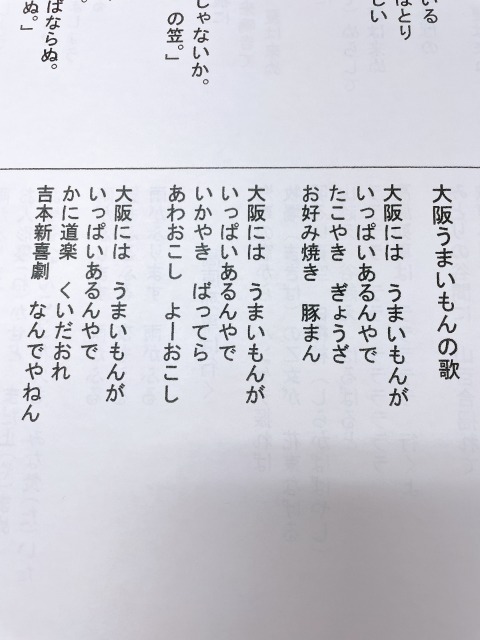 いる
はとり
しい
しゃないか。
の笠。」
ばならぬ。
ぬ。」
大阪うまいもんの歌
大阪には　うまいもんが
いっぱいあるんやで
たこやき　ぎょうざ
お好み焼き　豚まん
大阪には　うまいもんが
いっぱいあるんやで
いかやき　ばってら
あわおこし　よーおこし
大阪には　うまいもんが
いっぱいあるんやで
かに道楽　くいだおれ
吉本新喜劇　なんでやねん